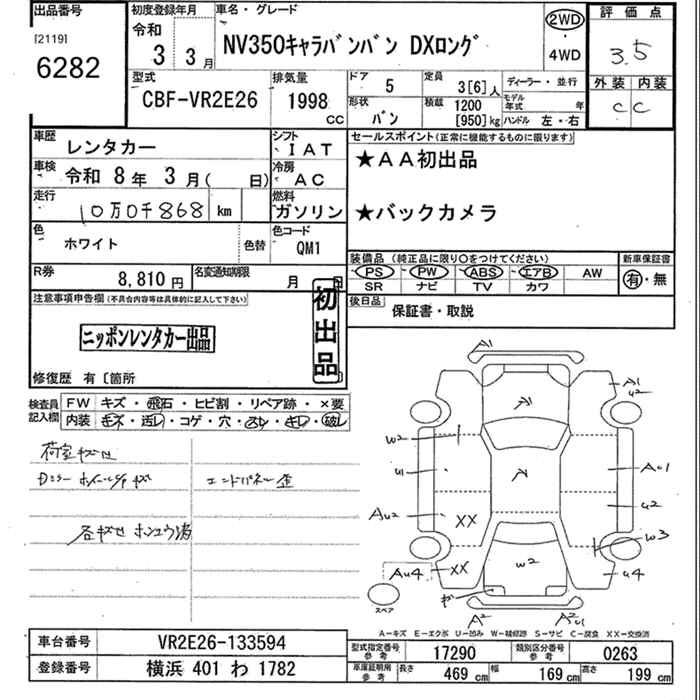 出品番号
[2119]
6282
初度登録年月
令和
3 3月
車名・グレード
NV350キャラバンバン DXロング
2WD
・
4WD
評価点
3.5
型式
CBF-VR2E26
排気量
1998
CC
ドア
5
定員
3[6]人
ディーラー・並行
外装 内装
C C
形状
バン
積載
1200
[950]kg
モデル年式 年
ハンドル 左・右
車歴
レンタカー
シフト
IAT
セールスポイント(正常に機能するものに限ります)
★AA初出品
★バックカメラ
車検
令和 8年 3月( 日)
冷房
AC
走行
10万0千868 km
燃料
ガソリン
色
ホワイト
色替
色コード
QM1
装備品 (純正品に限り○をつけてください)
新車保証書
PS PW ABS エアB AW
有・無
SR ナビ TV カワ
R券
8,810円
名変通知期限
月 日
後日品
保証書・取説
注意事項申告欄(不具合内容等は具体的に記入して下さい)
ニッポンレンタカー出品
初出品
修復歴 有〔箇所
検査員記入欄
FW キズ・飛石・ヒビ割・リペア跡・×要
内装 キズ・汚レ・コゲ・穴・スレ・キレ・破レ
荷室キズセ
Dミラー ホイールキャキズ
エンドパネル歪
各キズセ ホシュウ済
A1
A1
A1
U2
W2
U1
A
AU1
AU2
XX
U2
W3
AU4
XX
W2
U4
A2
A2U1
スペア
A-キズ E-エクボ U-凹み W-補修跡 S-サビ C-腐食 XX-交換済
車台番号
VR2E26-133594
型式指定番号
参考
17290
類別区分番号
参考
0263
登録番号
横浜 401 わ 1782
車庫証明用
参考
長さ
469 cm
幅
169 cm
高さ
199 cm